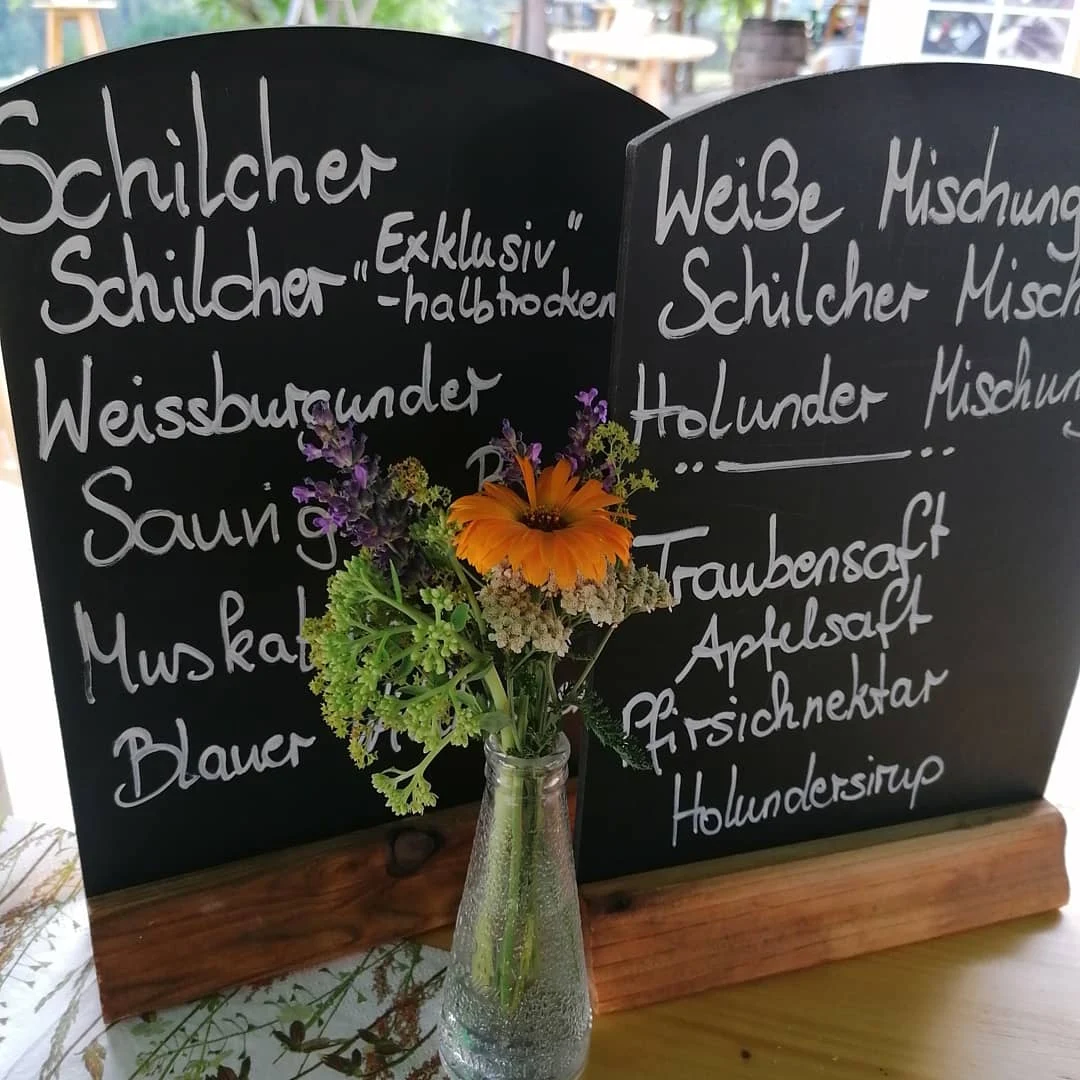 Schilcher
Schilcher "Exklusiv"
-halbtrocken
Weissburgunder
Sauvig
Muskat
Blauer
Weiße Mischung
Schilcher Misch
Holunder Mischun
Traubensaft
Apfelsaft
Pfirsichnektar
Holundersirup